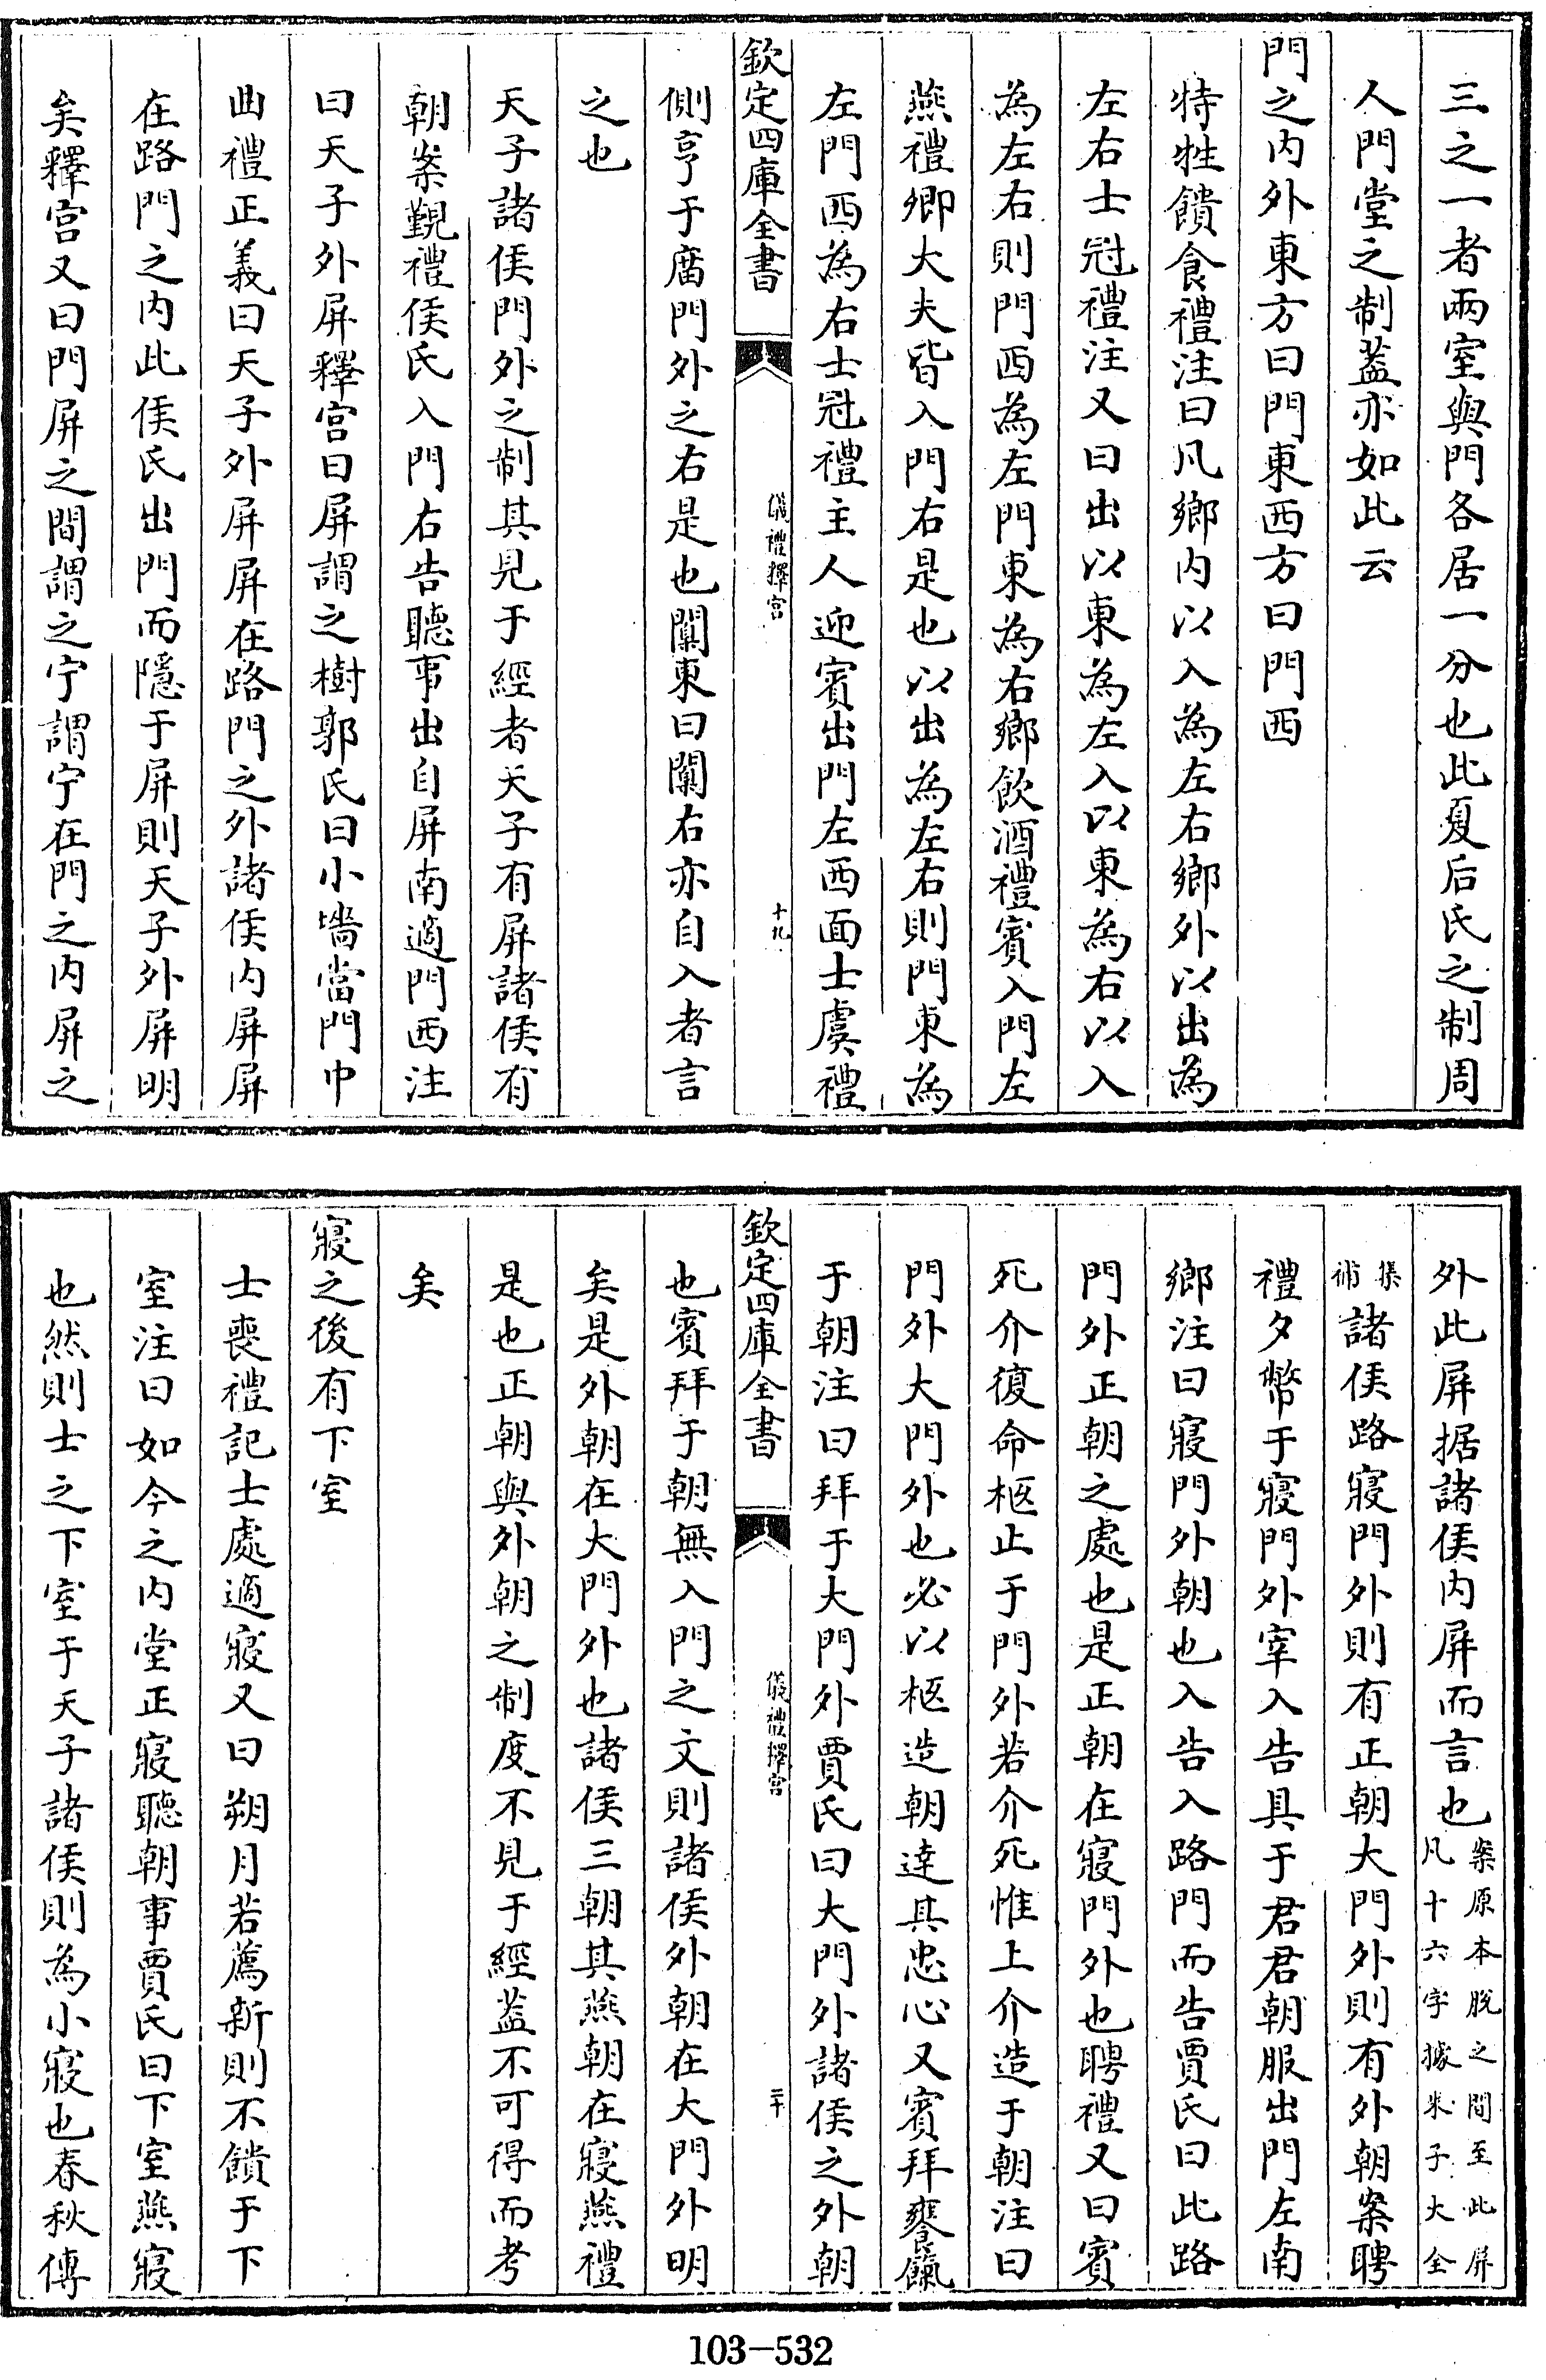 三之一者兩室與門各居一分也此夏后氏之制周
人門堂之制蓋亦如此云
門之内外東方曰門東西方曰門西
特牲饋食禮注曰凡鄉内以入為左右鄉外以出為
左右士冠禮注又曰出以東為左入以東為右以入
為左右則門西為左門東為右鄉飲酒禮賓入門左
燕禮卿大夫皆入門右是也以出為左右則門東為
左門西為右士冠禮主人迎賓出門左西面士虞禮
欽定四庫全書
儀禮釋宫
十九
側亨于廟門外之右是也闑東曰闑右亦自入者言
之也
天子諸侯門外之制其見于經者天子有屏諸侯有
朝案覲禮侯氏入門右告聽事出自屏南適門西注
曰天子外屏釋宫曰屏謂之樹郭氏曰小墻當門中
曲禮正義曰天子外屏屏在路門之外諸侯内屏屏
在路門之内此侯氏出門而隱于屏則天子外屏明
矣釋宫又曰門屏之間謂之宁謂宁在門之内屏之
外此屏据諸侯内屏而言也案原本脱之間至此屏凡十六字據朱子大全
集補諸侯路寢門外則有正朝大門外則有外朝案聘
禮夕幣于寢門外宰入告具于君君朝服出門左南
鄉注曰寢門外朝也入告入路門而告賈氏曰此路
門外正朝之處也是正朝在寢門外也聘禮又曰賓
死介復命柩止于門外若介死惟上介造于朝注曰
門外大門外也必以柩造朝達其忠心又賓拜饔餼
于朝注曰拜于大門外賈氏曰大門外諸侯之外朝
欽定四庫全書
儀禮釋宫
二十
也賓拜于朝無入門之文則諸侯外朝在大門外明
矣是外朝在大門外也諸侯三朝其燕朝在寢燕禮
是也正朝與外朝之制度不見于經蓋不可得而考
矣
寢之後有下室
士喪禮記士處適寢又曰朔月若薦新則不饋于下
室注曰如今之内堂正寢聽朝事賈氏曰下室燕寢
也然則士之下室于天子諸侯則為小寢也春秋傳
103-532